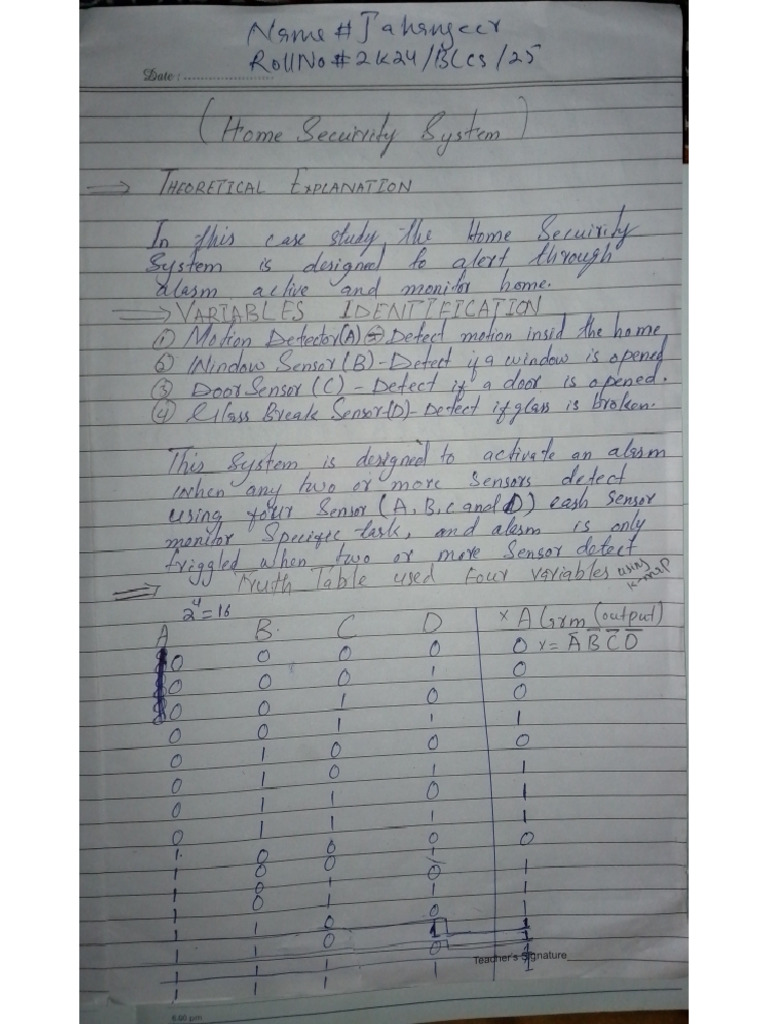 Name # Jahangeer
Roll No # 2K24/BLCS/25
Date : ......................
(Home Secuirity System)
→ THEORETICAL EXPLANATION
In this case study, the Home Secuirity
System is designed to alert through
alarm active and monitor home.
→ VARIABLES IDENTIFICATION
① Motion Detector(A) - Detect motion insid the home
② Window Sensor(B) - Detect if a window is opened
③ Door Sensor (C) - Detect if a door is opened.
④ Glass Break Sensor(D) - Detect if glass is broken.
This System is designed to activate an alarm
when any two or more Sensors detect
using four Sensor (A, B, C and D) eash Sensor
monitor Specific task, and alarm is only
triggled when two or more Sensor detect
⇒ Truth Table used Four variables using K-map
2⁴=16
A B. C D x Alarm (output)
0 0 0 0 0 x = A̅ B̅ C̅ D̅
0 0 0 1 0
0 0 1 0 0
0 0 1 1 1
0 1 0 0 0
0 1 0 1 1
0 1 1 0 1
0 1 1 1 1
1 0 0 0 0
1 0 0 1 1
1 0 1 0 1
1 0 1 1 1
1 1 0 0 1
1 1 0 1 1
1 1 1 0 1
1 1 1 1
Teacher's Signature
6:00 pm